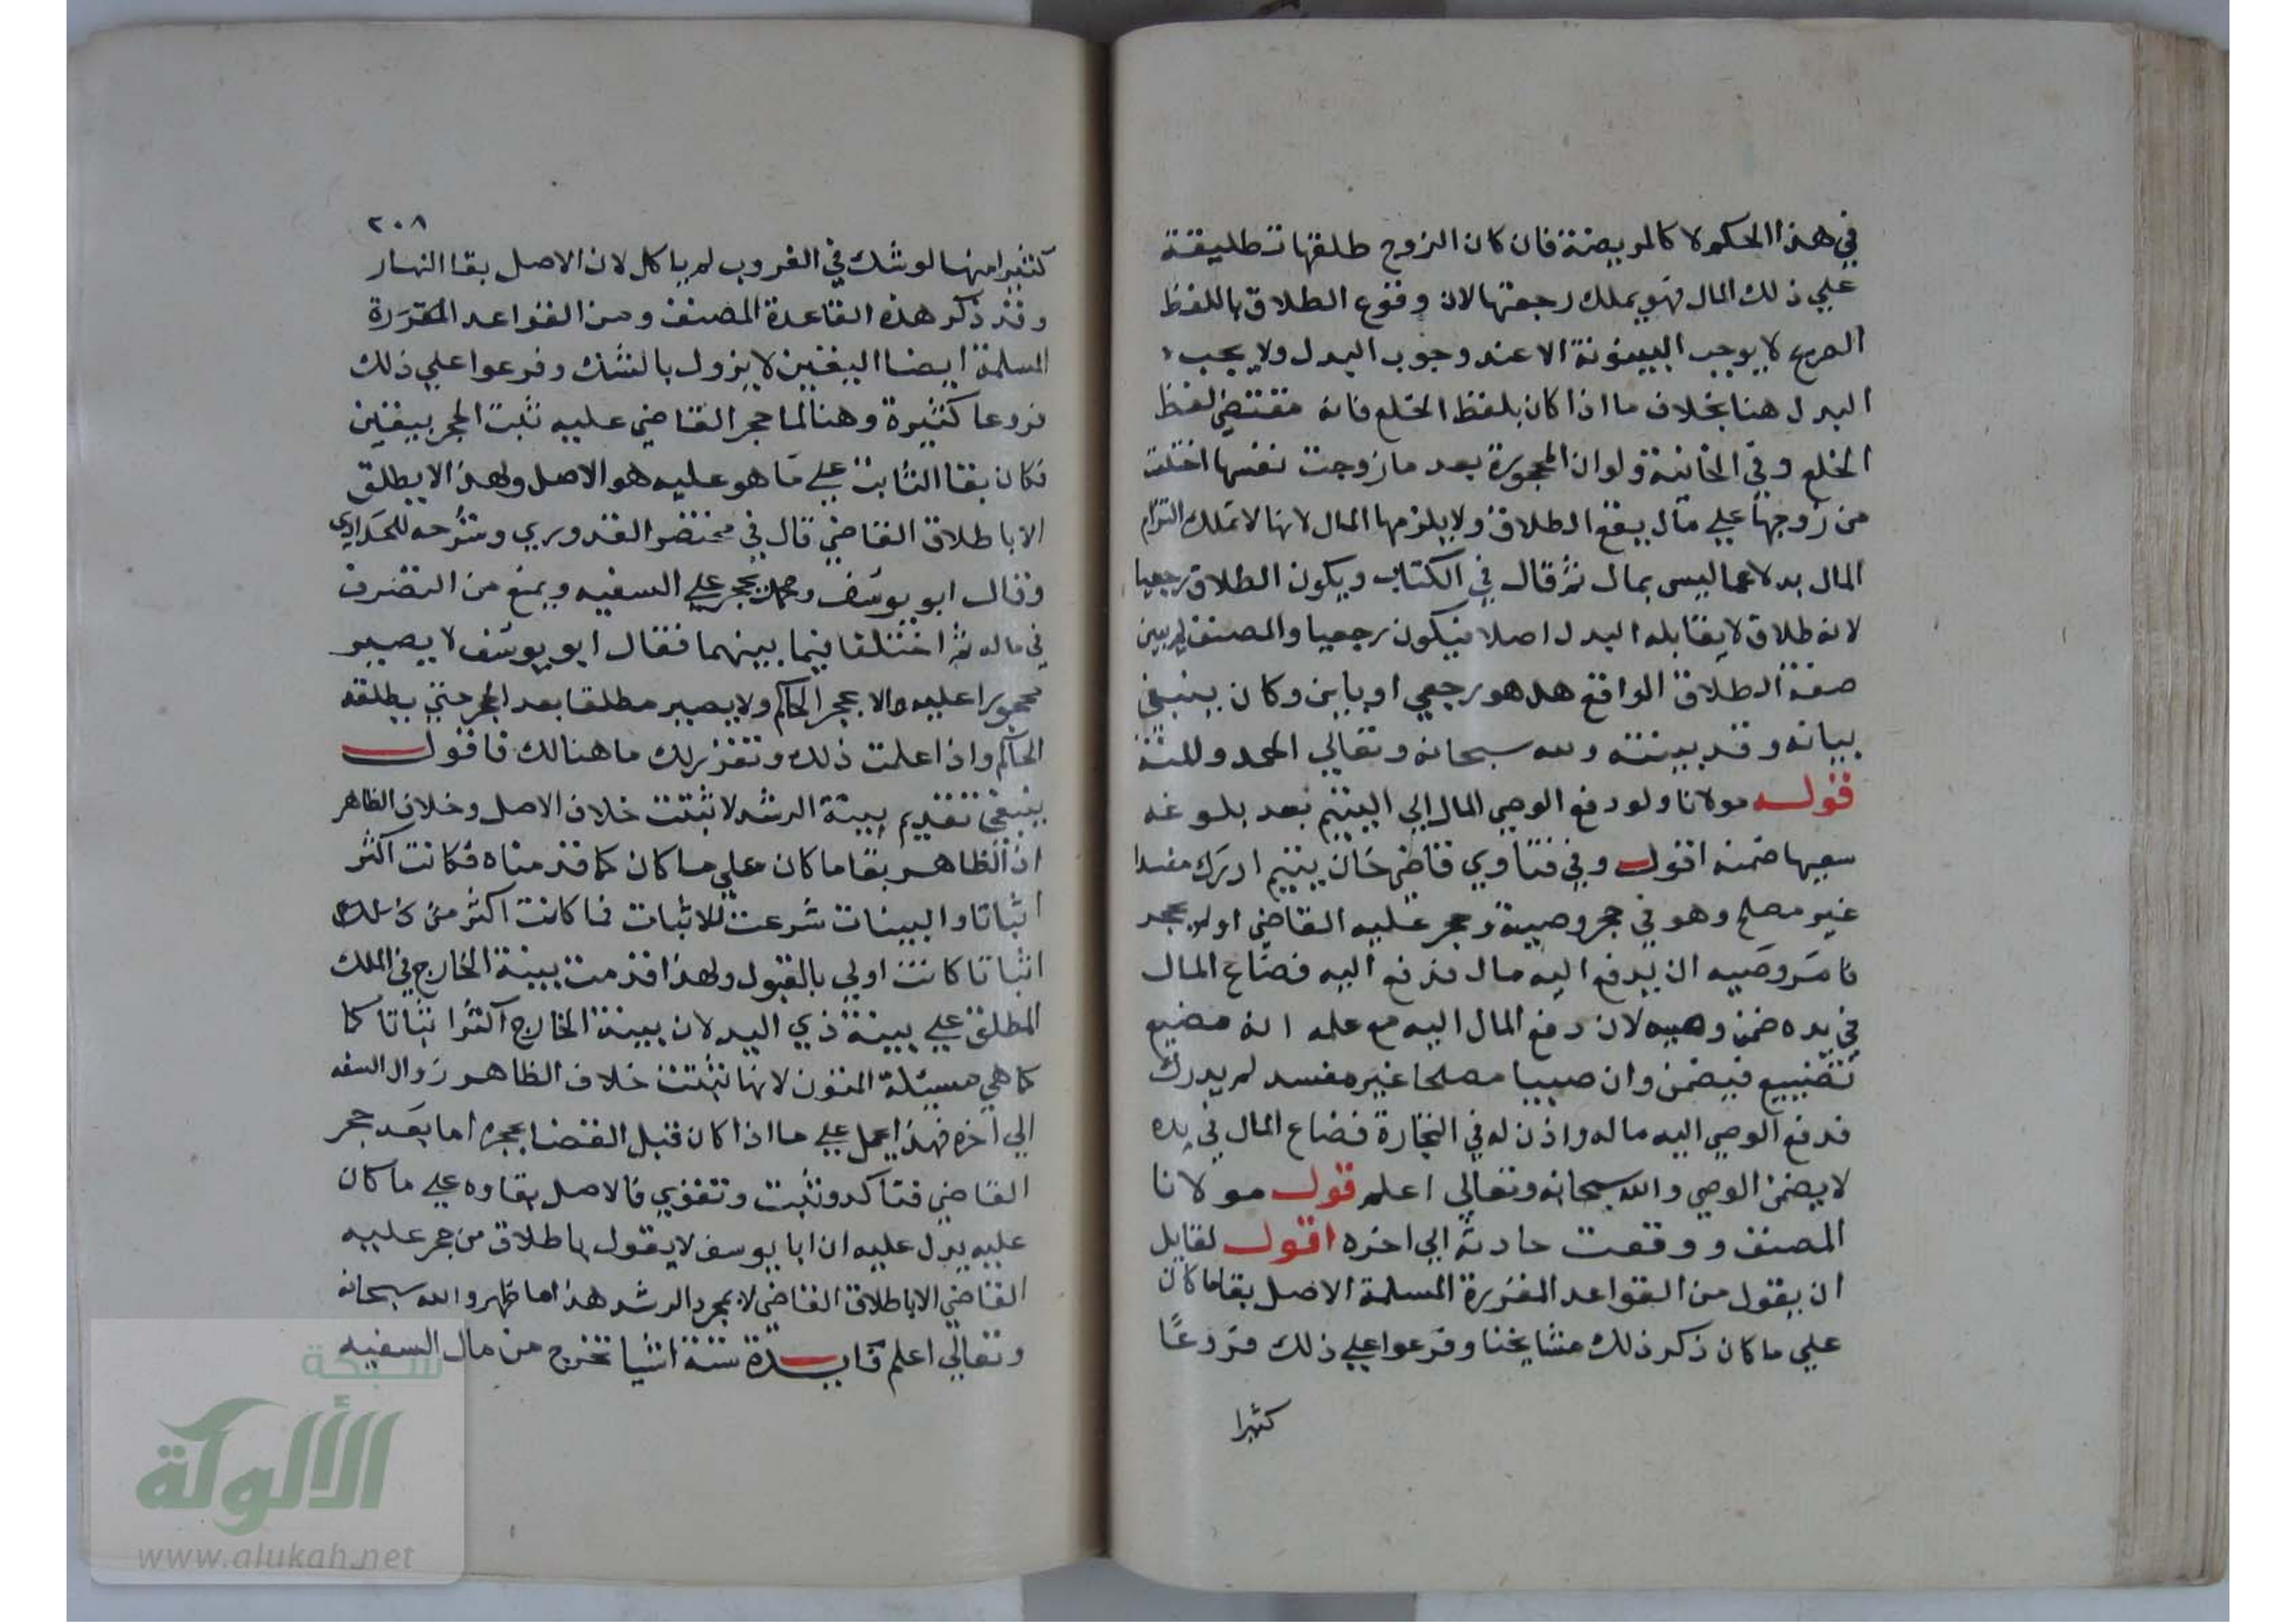 في هذا الحكم لا كالمريضة فان كان الزوج طلقها تطليقة
علي ذلك المال فهو يملك رجعتها لان وقوع الطلاق باللفظ
الصريح لا يوجب البينونة الا عند وجوب البدل ولا يجب
البدل هنا بخلاف ما اذا كان بلفظ الخلع فانه مقتضي لفظ
الخلع وفي الخانية ولو ان المحجورة بعد ما زوجت نفسها اختلعت
من زوجها علي مال يقع الطلاق ولا يلزمها المال لانها لا تملك التزام
المال بدلا عما ليس بمال ثم قال في الكتاب ويكون الطلاق رجعيا
لانه طلاق لا يقابله البدل اصلا فيكون رجعيا والمصنف لم يبين
صفة الطلاق الواقع هل هو رجعي او باين وكان ينبغي
بيانه وقد بينته ولله سبحانه وتعالي الحمد والمنة
قوله مولانا ولو دفع الوصي المال الي اليتيم بعد بلوغه
سفيها ضمنه اقول وفي فتاوي قاضي خان يتيم ادرك مفسدا
غير مصلح وهو في حجر وصيه وحجر عليه القاضي او لم يحجر
فامر وصيه ان يدفع اليه مال فدفع اليه فضاع المال
في يده ضمن وصيه لان دفع المال اليه مع علمه انه مضيع
تضييع فيضمن وان صبيا مصلحا غير مفسد لم يدرك
فدفع الوصي اليه ماله واذن له في التجارة فضاع المال في يده
لا يضمن الوصي والله سبحانه وتعالي اعلم قول مولانا
المصنف ووقعت حادثة الي اخره اقول لقايل
ان يقول من القواعد المقررة المسلمة الاصل بقا ما كان
علي ما كان ذكر ذلك مشايخنا وفرعوا علي ذلك فروعًا
كثيرا
٢٠٨
كثيرا منها لو شك في الغروب لم ياكل لان الاصل بقا النهار
وقد ذكر هذه القاعدة المصنف ومن القواعد المقررة
المسلمة ايضا اليقين لا يزول بالشك وفرعوا علي ذلك
فروعا كثيرة وهنا لما حجر القاضي عليه ثبت الحجر بيقين
فكان بقا الثابت علي ما هو عليه هو الاصل ولهذا لا يطلق
الا باطلاق القاضي قال في مختصر القدوري وشرحه للحدادي
وقال ابو يوسف ومحمد يحجر علي السفيه ويمنع من التصرف
في ماله ثم اختلفا فيما بينهما فقال ابو يوسف لا يصير
محجورا عليه الا بحجر الحاكم ولا يصير مطلقا بعد الحجر حتي يطلقه
الحاكم واذا علمت ذلك وتقرر لك ما هنالك فاقول
ينبغي تقديم بينة الرشد لاثبتت خلاف الاصل وخلاف الظاهر
اذ الظاهر بقا ما كان علي ما كان كما قدمناه فكانت اكثر
اثباتا والبينات شرعت للاثبات فما كانت اكثر من ذلك
اثباتا كانت اولي بالقبول ولهذا قدمت بينة الخارج في الملك
المطلق علي بينة ذي اليد لان بينة الخارج اكثر اثباتا كا
كما هي مسئلة المتون لانها تثبت خلاف الظاهر زوال السفه
الي اخره فهذا يحمل علي ما اذا كان قبل القضا بحجره اما بعد حجر
القاضي فتاكد وثبت وتقوي فالاصل بقاوه علي ما كان
عليه يدل عليه ان ابا يوسف لا يقول باطلاق من حجر عليه
القاضي الا باطلاق القاضي لا بمجرد الرشد هذا ما ظهر والله سبحانه
وتعالي اعلم فايدة ستة اشيا تخرج من مال السفيه
شبكة
الألوكة
www.alukah.net